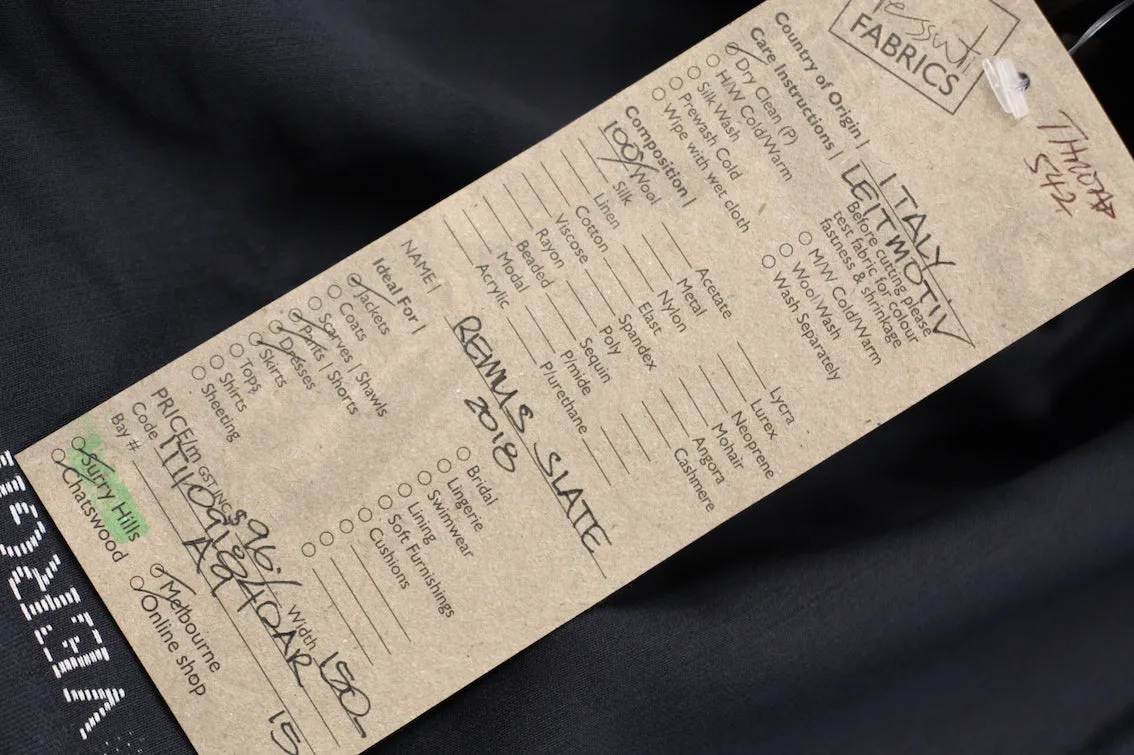 Tessuti
FABRICS
Country of Origin | ITALY
LEITMOTIV
Care Instructions |
Before cutting please
test fabric for colour
fastness & shrinkage
Dry Clean (P)
H/W Cold/Warm
Silk Wash
Prewash Cold
Wipe with wet cloth
M/W Cold/Warm
Wool Wash
Wash Separately
Composition |
100% Wool
Silk
Linen
Cotton
Viscose
Rayon
Beaded
Modal
Acrylic
Acetate
Metal
Nylon
Elast
Spandex
Poly
Sequin
P/mide
P/urethane
Lycra
Lurex
Neoprene
Mohair
Angora
Cashmere
NAME | REMUS SLATE
2018
Ideal For |
Jackets
Coats
Scarves | Shawls
Pants | Shorts
Dresses
Skirts
Tops
Shirts
Sheeting
Bridal
Lingerie
Swimwear
Lining
Soft Furnishings
Cushions
PRICE/m GST INC $96./ Width 150
Code
Bay # A9
15
Surry Hills
Chatswood
Melbourne
Online shop
542